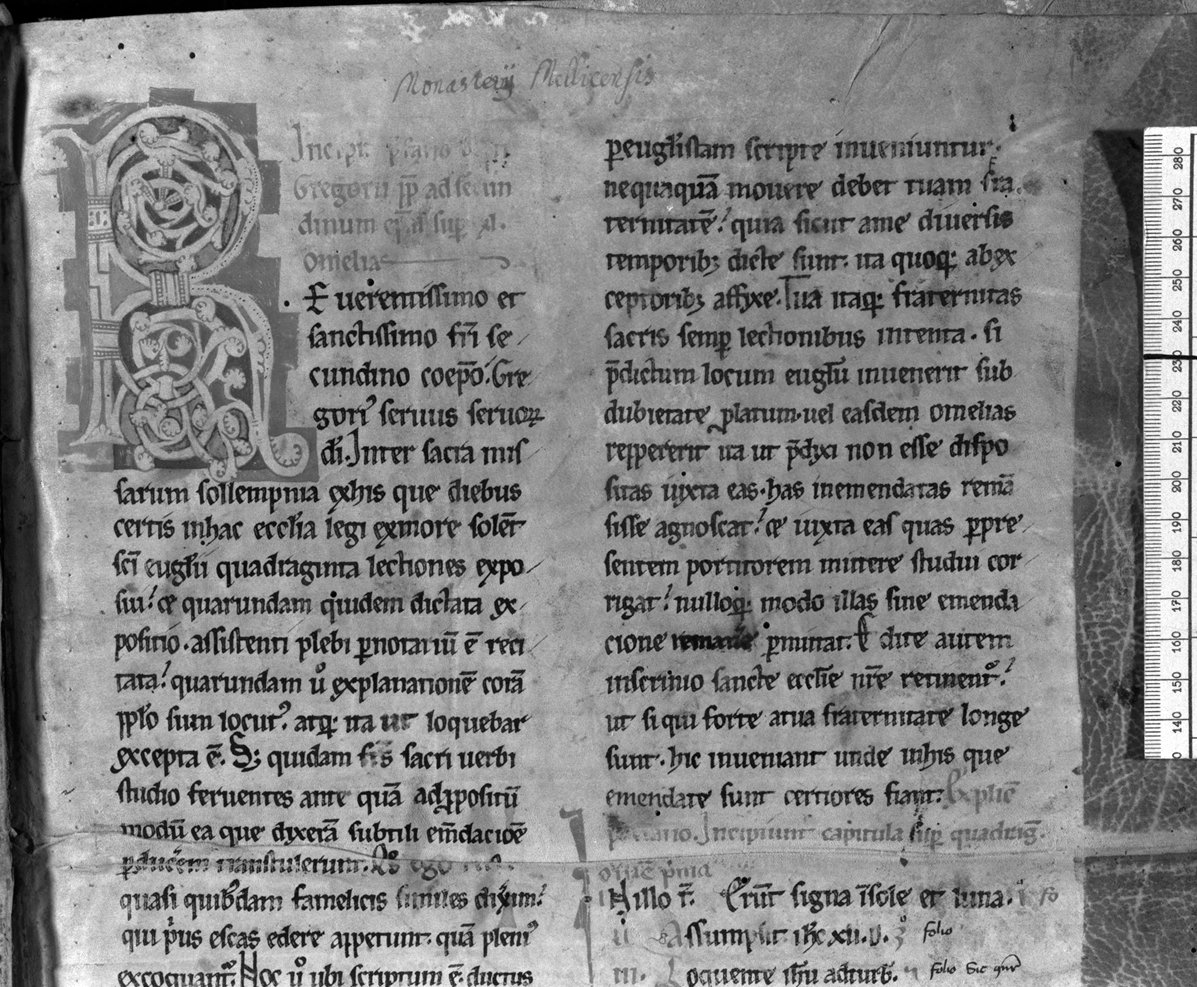 Monasterij Mellicensis
Incipit
Gregorii pp̄ ad secun
dinum ep̄m sup̄ xl.
Omelias
EVerentissimo et
sanctissimo fr̄i se
cundino coep̄o. Gre
gori᷒ seruus seruoꝝ
dī. Inter sacra mis
sarum sollempnia exhis que diebus
certis inhac ecclīa legi exmore solēt
sc̄i eugl̄ii quadraginta lectiones expo
sui. et quarundam quidem dictata ex
positio. assistenti plebi ꝑnotariū ē reci
tata. quarundam ů explanationē corā
pplo sum locut᷒. atq; ita ut loquebar
excepta ē. S; quidam fr̄s sacri uerbi
studio feruentes ante quā ad ꝓpositū
modū ea que dixerā subtili em̄dacioē
ꝑducerem transtulerunt. Q̊s ego
quasi quibdam famelicis similes dixim᷒
qui pri᷒us escas edere appetunt. quā pleni᷒
excoquant᷒. Hoc ů ubi scriptum ē. ductus
ꝑeugl̄istam scripte inueniuntur.
nequaquā mouere debet tuam fra
ternitatē. quia sicut ame diuersis
temporib; dicte sunt. ita quoq; abex
ceptorib; affixe. Tua itaq; fraternitas
sacris semꝑ lectionibus intenta. si
p̄dictum locum eugl̄ii inuenerit sub
dubietate ꝓlatum. uel easdem omelias
reppererit ita ut p̄dixi non esse dispo
sitas iuxta eas. has inemendatas remā
sisse agnoscat. et iuxta eas quas ꝑpre
sentem portitorem mittere studui cor
rigat. nulloq; modo illas sine emenda
cione remanere ꝑmittat. Edite autem
inscrinio sancte ecclīe nr̄e retinent᷒.
ut si qui forte atua fraternitate longe
sunt. hic inueniant unde inhis que
emendate sunt certiores fiant. Explic̄
Incipiunt capitula sup̄ quadraḡ.
INillo t̄. Erūt signa īsole et luna. i fo
ii Assumpsit ih̄c xii. folio
iii. Loquente ih̄u adturb̄. folio Sic